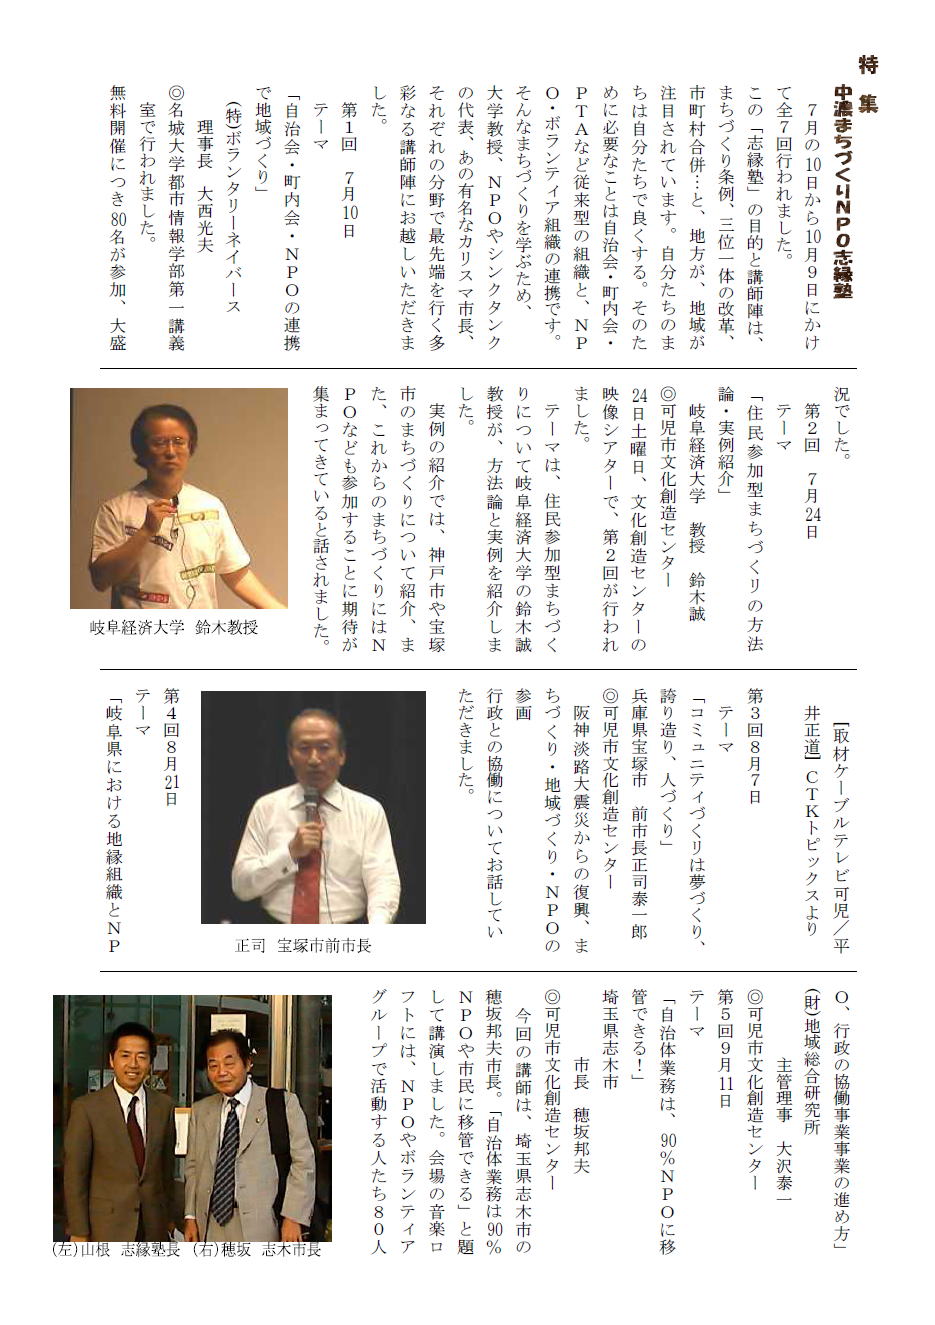 特集
中濃まちづくりNPO志縁塾
７月の10日から10月９日にかけ
て全７回行われました。
この「志縁塾」の目的と講師陣は、
まちづくり条例、三位一体の改革、
市町村合併…と、地方が、地域が
注目されています。自分たちのま
ちは自分たちで良くする。そのた
めに必要なことは自治会・町内会・
ＰＴＡなど従来型の組織と、ＮＰ
Ｏ・ボランティア組織の連携です。
そんなまちづくりを学ぶため、
大学教授、ＮＰＯやシンクタンク
の代表、あの有名なカリスマ市長、
それぞれの分野で最先端を行く多
彩なる講師陣にお越しいただきま
した。
第１回　７月10日
テーマ
「自治会・町内会・ＮＰＯの連携
で地域づくり」
(特)ボランタリーネイバース
理事長　大西光夫
◎名城大学都市情報学部第一講義
室で行われました。
無料開催につき80名が参加、大盛
況でした。
第２回　７月24日
テーマ
「住民参加型まちづくりの方法
論・実例紹介」
岐阜経済大学　教授　鈴木誠
◎可児市文化創造センター
24日土曜日、文化創造センターの
映像シアターで、第２回が行われ
ました。
テーマは、住民参加型まちづく
りについて岐阜経済大学の鈴木誠
教授が、方法論と実例を紹介しま
した。
実例の紹介では、神戸市や宝塚
市のまちづくりについて紹介、ま
た、これからのまちづくりにはＮ
ＰＯなども参加することに期待が
集まってきていると話されました。
岐阜経済大学　鈴木教授
[取材ケーブルテレビ可児／平
井正道]ＣＴＫトピックスより
第３回８月７日
テーマ
「コミュニティづくりは夢づくり、
誇り造り、人づくり」
兵庫県宝塚市　前市長正司泰一郎
◎可児市文化創造センター
阪神淡路大震災からの復興、ま
ちづくり・地域づくり・ＮＰＯの
参画
行政との協働についてお話してい
ただきました。
正司　宝塚市前市長
第４回８月21日
テーマ
「岐阜県における地縁組織とＮＰ
Ｏ、行政の協働事業事業の進め方」
(財)地域総合研究所
主管理事　大沢泰一
◎可児市文化創造センター
第５回９月11日
テーマ
「自治体業務は、90％ＮＰＯに移
管できる！」
埼玉県志木市
市長　穂坂邦夫
◎可児市文化創造センター
今回の講師は、埼玉県志木市の
穂坂邦夫市長。「自治体業務は90％
ＮＰＯや市民に移管できる」と題
して講演しました。会場の音楽ロ
フトには、ＮＰＯやボランティア
グループで活動する人たち８０人
(左)山根　志縁塾長　(右)穂坂　志木市長